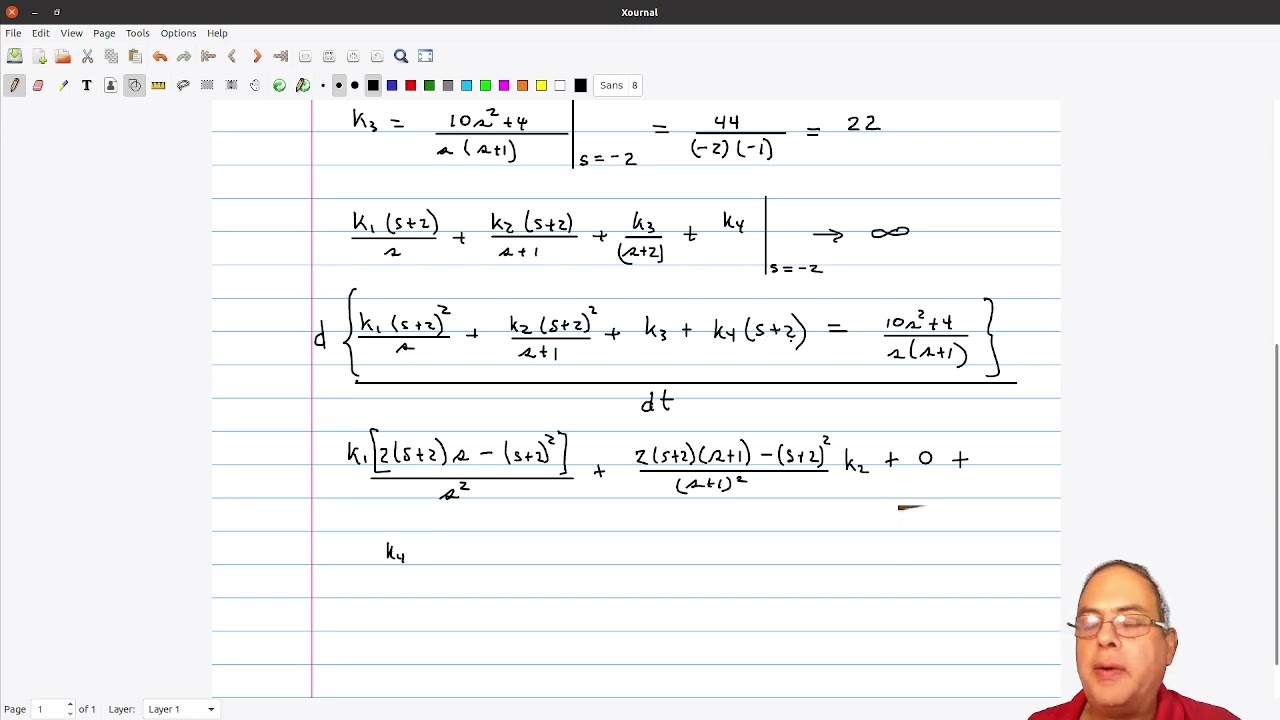 Xournal
File Edit View Page Tools Options Help
Sans 8
k₃ = (10s²+4)/(s(s+1)) |s=-2 = 44/((-2)(-1)) = 22
k₁(s+2)/s + k₂(s+2)/(s+1) + k₃/(s+2) + k₄ |s=-2 → ∞
d { k₁(s+2)²/s + k₂(s+2)²/(s+1) + k₃ + k₄(s+2) = (10s²+4)/(s(s+1)) }
dt
k₁[2(s+2)s - (s+2)²]/s² + (2(s+2)(s+1) - (s+2)²)/(s+1)² k₂ + 0 +
k₄
Page 1 of 1 Layer: Layer 1